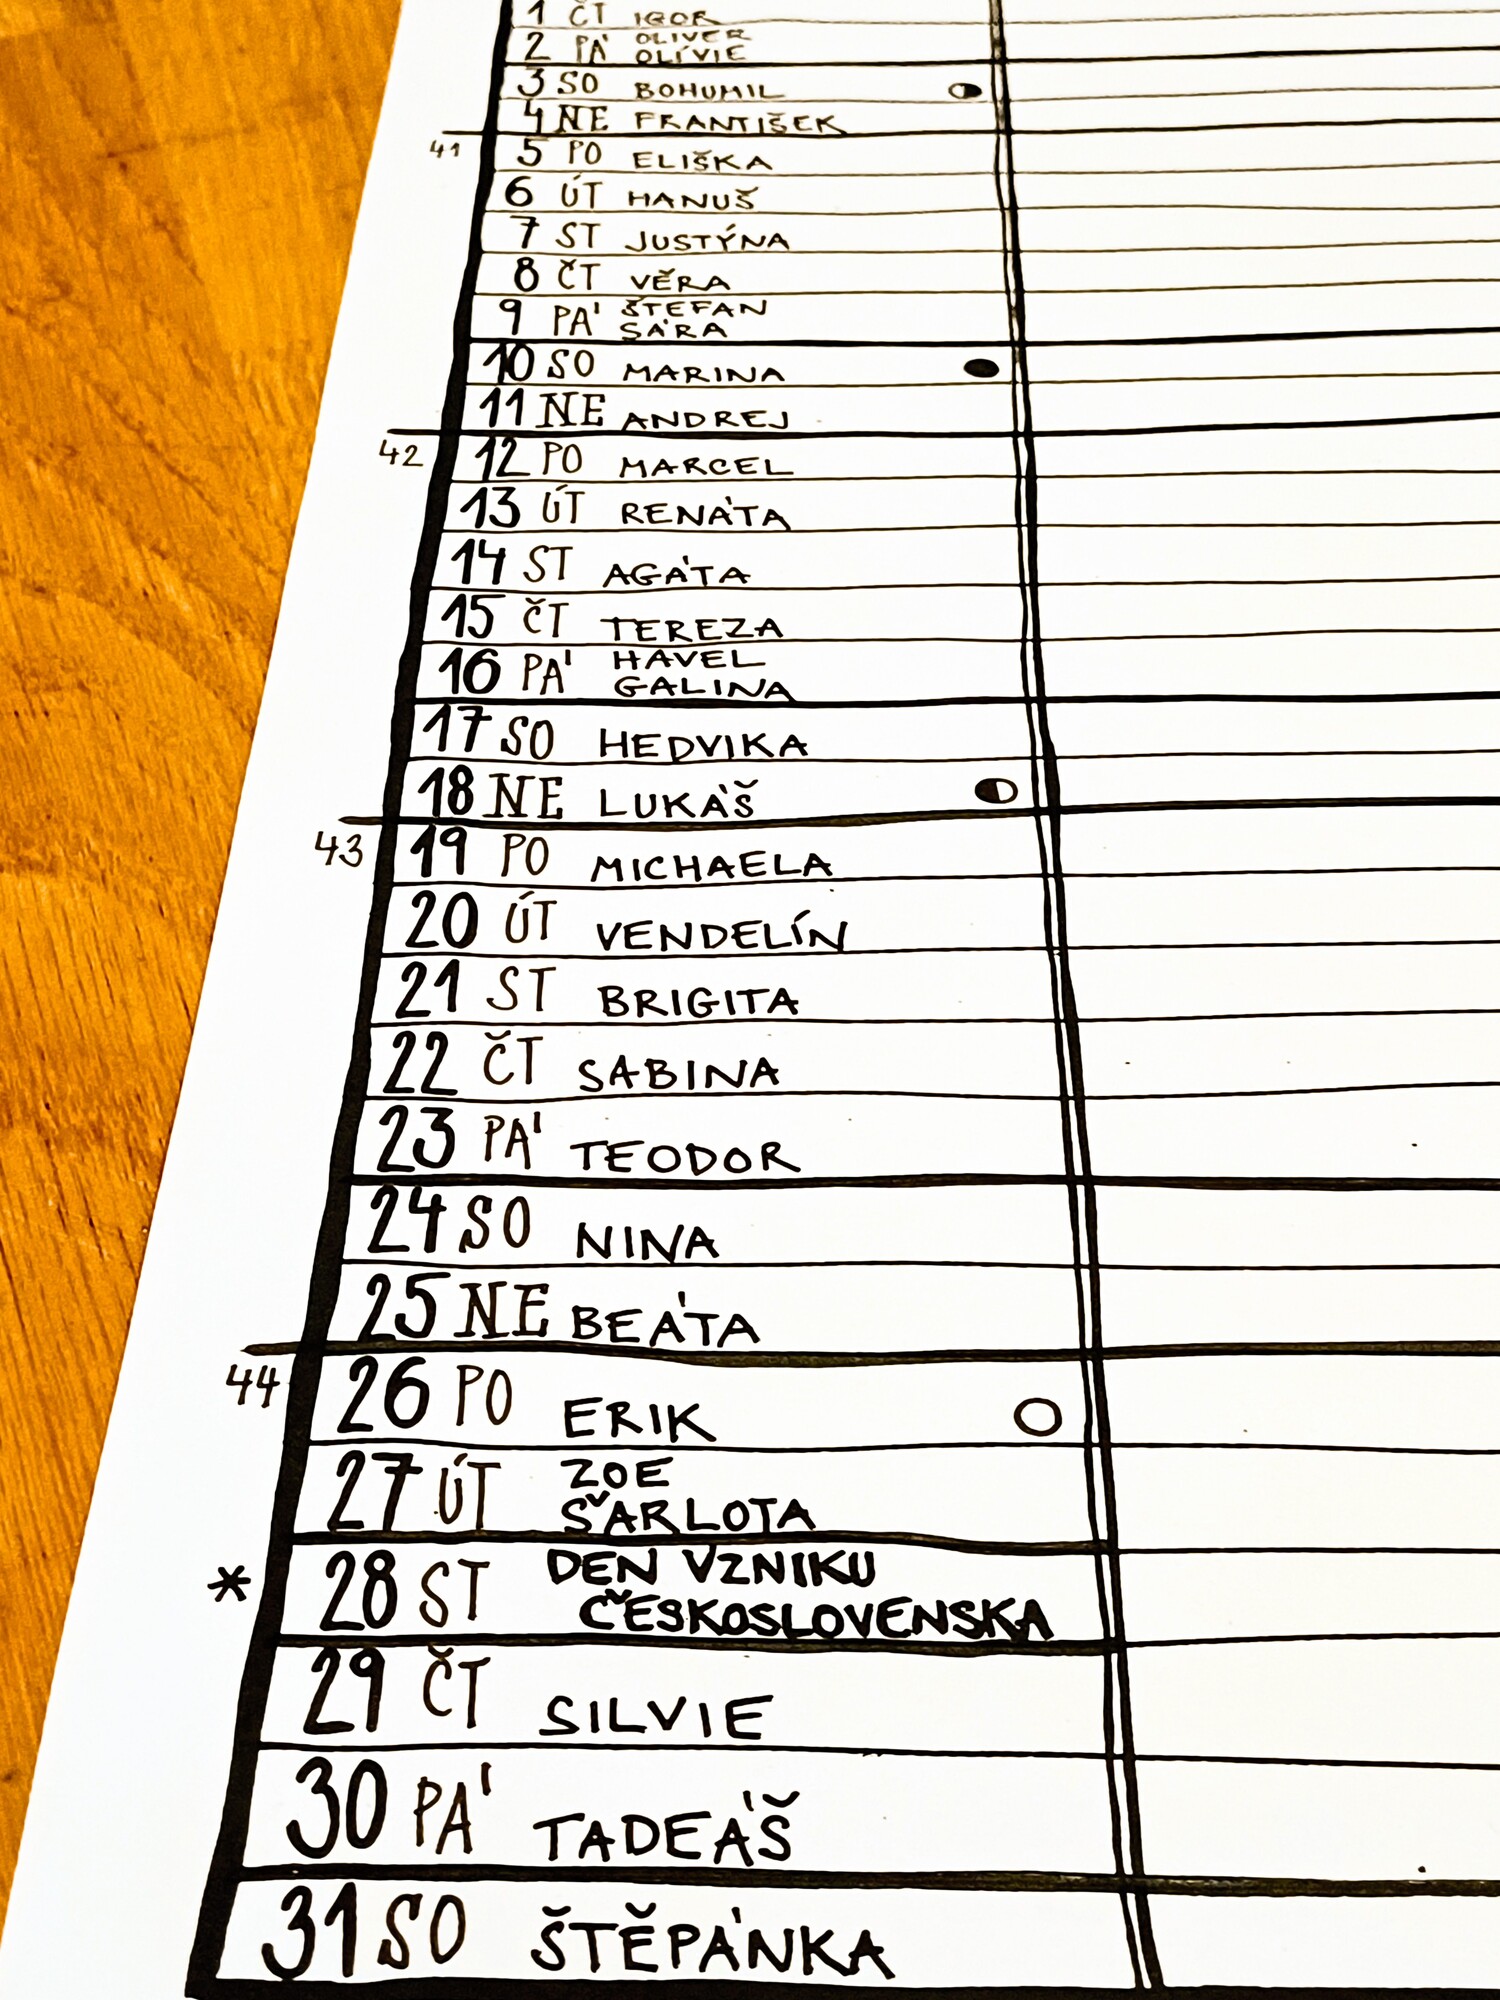 1 ČT IGOR
2 PÁ OLIVER
OLÍVIE
3 SO BOHUMIL
4 NE FRANTIŠEK
41 5 PO ELIŠKA
6 ÚT HANUŠ
7 ST JUSTÝNA
8 ČT VĚRA
9 PÁ ŠTEFAN
SÁRA
10 SO MARINA
11 NE ANDREJ
42 12 PO MARCEL
13 ÚT RENÁTA
14 ST AGÁTA
15 ČT TEREZA
16 PÁ HAVEL
GALINA
17 SO HEDVIKA
18 NE LUKÁŠ
43 19 PO MICHAELA
20 ÚT VENDELÍN
21 ST BRIGITA
22 ČT SABINA
23 PÁ TEODOR
24 SO NINA
25 NE BEÁTA
44 26 PO ERIK
27 ÚT ZOE
ŠARLOTA
* 28 ST DEN VZNIKU
ČESKOSLOVENSKA
29 ČT SILVIE
30 PÁ TADEÁŠ
31 SO ŠTĚPÁNKA